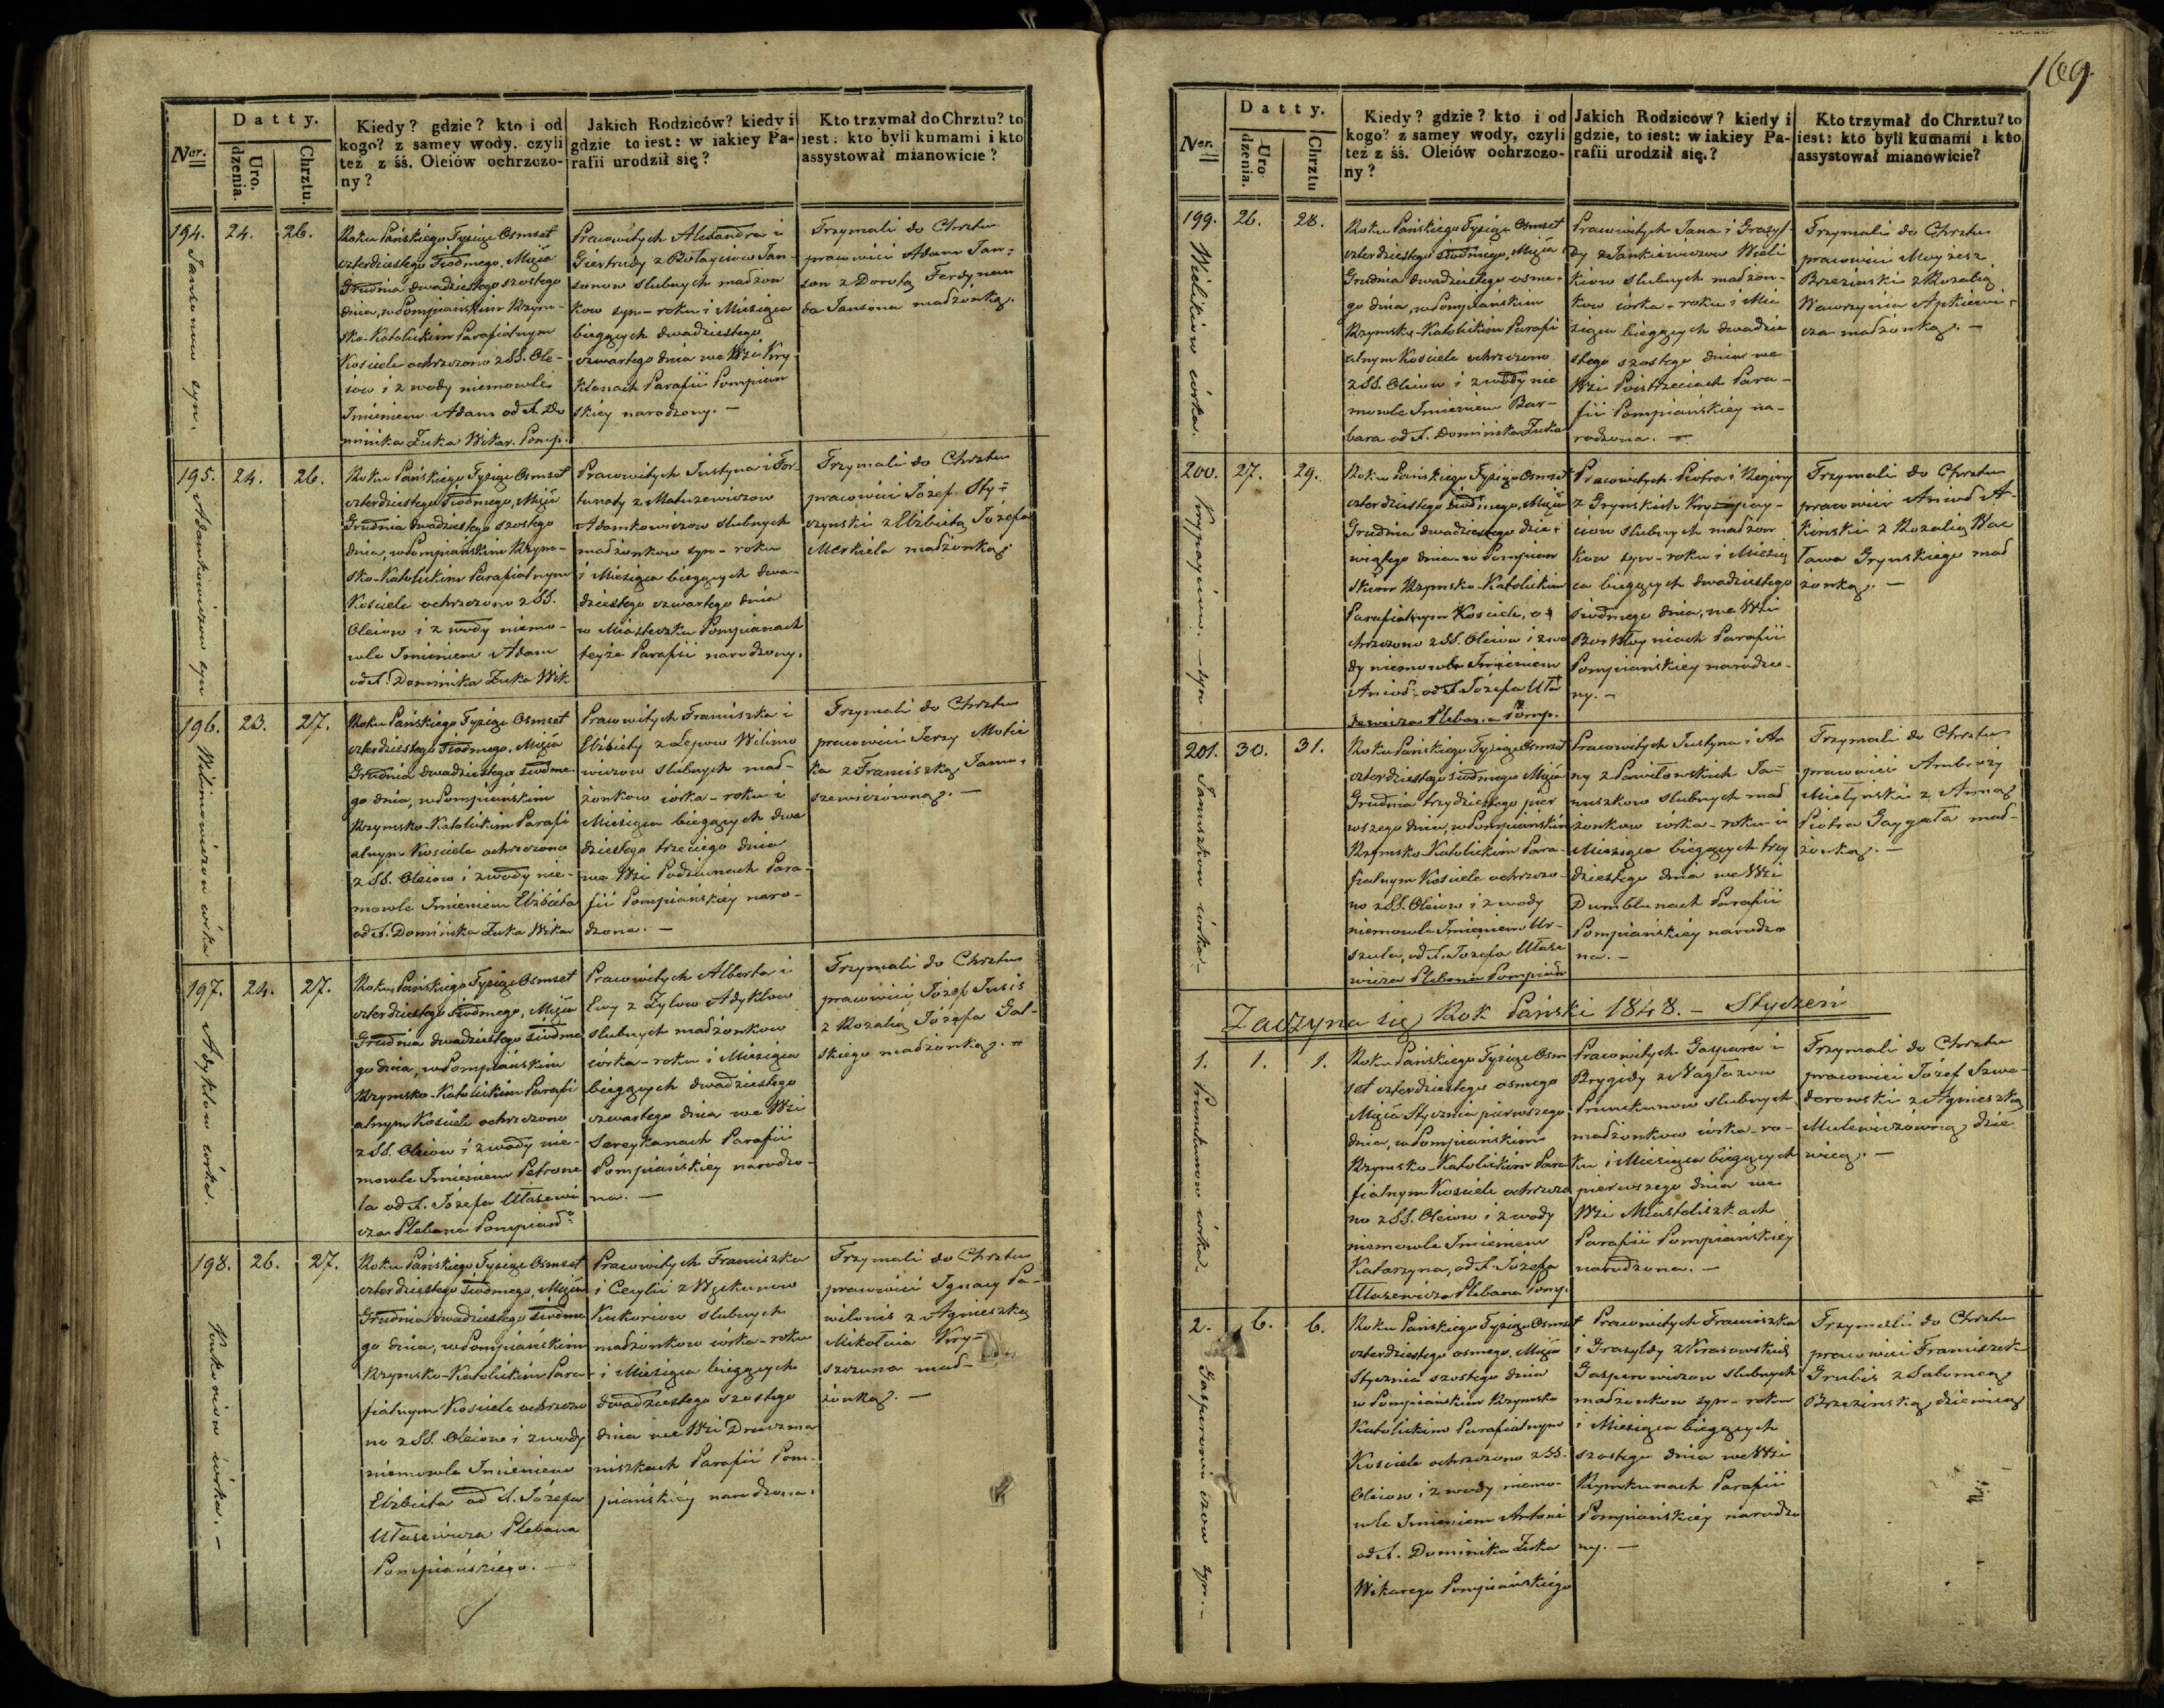 Datty.
Ner.
Uro.
dzenia.
Chrztu.
Kiedy? gdzie? kto i od
kogo? z samey wody, czyli
też z śś. Oleiów ochrzczo-
ny?
Jakich Rodziców? kiedy i
gdzie to iest: w iakiey Pa-
rafii urodził się?
Kto trzymał do Chrztu? to
iest: kto byli kumami i kto
assystował mianowicie?
194. 24. 26.
Jansonow syn.
Roku Pańskiego Tysiąc Osmset
czterdziestego Siodmego, Mięsią
Grudnia dwadziestego szostego
dnia, w Pompiańskim Rzym-
sko-Katolickim Parafialnym
Kościele ochrzczono z SS. Ole-
iow i z wody niemowle
Imieniem Adam od X. Do
minika Żuka Wikar. Pomp.
Pracowitych Alexandra i
Giertrudy z Jan-
sonow slubnych małżon
kow syn - roku i Miesiąca
bieżących dwadziestego
czwartego dnia we Wsi Kry
klanach Parafii Pompian
skiey narodzony. -
Trzymali do Chrztu
pracowici Adam Jan-
son z Dorotą Ferdynan
da Jansona małżonką.
195. 24. 26.
Adamkowiczow syn
Roku Pańskiego Tysiąc Osmset
czterdziestego Siodmego, Mięsią
Grudnia dwadziestego szostego
dnia, w Pompiańskim Rzym-
sko-Katolickim Parafialnym
Kościele ochrzczono z SS.
Oleiow i z wody niemo-
wle Imieniem Adam
od X. Dominika Żuka Wik
Pracowitych Justyna i For-
tunaty z Matuzewiczow
Adamkowiczow slubnych
małżonkow syn - roku
i Miesiąca bieżących dwa-
dziestego czwartego dnia
w Miasteczku Pompianach
teyże Parafii narodzony.
Trzymali do Chrztu
pracowici Józef Sty-
czynski z Elżbietą Józefa
Merkiela małżonką.
196. 23. 27.
Wilimowiczow córka
Roku Pańskiego Tysiąc Osmset
czterdziestego Siodmego, Mięsią
Grudnia dwadziestego siodme
go dnia, w Pompiańskim
Rzymsko-Katolickim Parafi
alnym Kościele ochrzczono
z SS. Oleiow i z wody nie-
mowle Imieniem Elżbieta
od X. Dominika Żuka Wikar
Pracowitych Franciszka i
Elżbiety z Lejow Wilimo
wiczow slubnych mał-
żonkow córka - roku i
Miesiąca bieżących dwa
dziestego trzeciego dnia
we Wsi Podziunach Para-
fii Pompiańskiey naro-
dzona. -
Trzymali do Chrztu
pracowici Jerzy Motie
ka z Franciszką Janu-
szewiczowną. -
197. 24. 27.
Adyklow córka.
Roku Pańskiego Tysiąc Osmset
czterdziestego Siodmego, Mięsią
Grudnia dwadziestego siodme
go dnia, w Pompiańskim
Rzymsko-Katolickim Parafi
alnym Kościele ochrzczono
z SS. Oleiow i z wody nie-
mowle Imieniem Petrone
la od X. Józefa Utasewi
cza Plebana Pompiań
Pracowitych Alberta i
Ewy z Zylow Adyklow
slubnych małżonkow
córka - roku i Miesiąca
bieżących dwadziestego
czwartego dnia we Wsi
Sereykanach Parafii
Pompiańskiey narodzo-
na. -
Trzymali do Chrztu
pracowici Józef Jusis
z Rozalią Józefa Gal-
skiego małżonką. -
198. 26. 27.
Kukoriow córka. -
Roku Pańskiego Tysiąc Osmset
czterdziestego siodmego, Mięsią
Grudnia dwadziestego siodme
go dnia, w Pompiańskim
Rzymsko-Katolickim Para-
fialnym Kościele ochrzczo
no z SS. Oleiow i z wody
niemowle Imieniem
Elżbieta od X. Józefa
Utasewicza Plebana
Pompiańskiego. -
Pracowitych Franciszka
i Cecylii z Wizkunow
Kukoriow slubnych
małżonkow córka - roku
i Miesiąca bieżących
dwadziestego szostego
dnia we Wsi Druzma
niszkach Parafii Pom-
piańskiey narodzona.
Trzymali do Chrztu
pracowici Ignacy Pa-
wilonis z Agnieszką
Mikołaia Kry-
szczuna mał-
żonką. -
169.
Datty.
Ner.
Uro
dzenia.
Chrztu
Kiedy? gdzie? kto i od
kogo? z samey wody, czyli
też z śś. Oleiów ochrzczo-
ny?
Jakich Rodziców? kiedy i
gdzie, to iest: w iakiey Pa-
rafii urodził się.?
Kto trzymał do Chrztu? to
iest: kto byli kumami i kto
assystował mianowicie?
199. 26. 28.
Wielikiow córka.
Roku Pańskiego Tysiąc Osmset
czterdziestego siodmego, Mięsią
Grudnia dwadziestego osme-
go dnia, w Pompiańskim
Rzymsko-Katolickim Parafi
alnym Kościele ochrzczono
z SS. Oleiow i z wody nie
mowle Imieniem Bar-
bara od X. Dominika Żuka
Pracowitych Jana i Grazyl
dy z Jankiewiczow Wieli
kiow slubnych małżon-
kow córka - roku i Mie
siąca bieżących dwadzie
stego szostego dnia we
Wsi Poistrzeciach Para-
fii Pompiańskiey na-
rodzona. -
Trzymali do Chrztu
pracowici Moyżesz
Brzezinski z Rozalią
Wawrzyna Apkiewi-
cza małżonką. -
200. 27. 29.
syn
Roku Pańskiego Tysiąc Osmset
czterdziestego siodmego, Mięsią
Grudnia dwadziestego dzie-
wiątego dnia w Pompian
skim Rzymsko-Katolickim
Parafialnym Kościele, o-
chrzczono z SS. Oleiow i z wo
dy niemowle Imieniem
Anioł od X. Józefa Uta
sewicza Pleban. Pomp.
Pracowitych Piotra i Reginy
z Grynskich
ciow slubnych małżon
kow syn - roku i Miesią
ca bieżących dwadziestego
siodmego dnia, we Wsi
Parafii
Pompiańskiey narodzo-
ny. -
Trzymali do Chrztu
pracowici Anioł A-
kinski z Rozalią Wac
ława Grynskiego mał
żonką. -
201. 30. 31.
Januszkow córka -
Roku Pańskiego Tysiąc Osmset
czterdziestego siodmego Mięsią
Grudnia trzydziestego pier
wszego dnia, w Pompiańskim
Rzymsko-Katolickim Para-
fialnym Kościele ochrzczo-
no z SS. Oleiow i z wody
niemowle Imieniem Ur-
szula, od X. Józefa Utase
wicza Plebana Pompiań
Pracowitych Justyna i An
ny z Pawiłowskich Ja-
nuszkow slubnych mał
żonkow córka - roku i
Miesiąca bieżących trzy
dziestego dnia we Wsi
Dumblunach Parafii
Pompiańskiey narodzo
na. -
Trzymali do Chrztu
pracowici Ambroży
Mietynski z Anną
Piotra Gaygała mał-
żonką. -
Zaczyna się Rok Pański 1848. - Styczeń
1. 1. 1.
Prunckunow córka.
Roku Pańskiego Tysiąc Osm
set czterdziestego osmego
Mięsią Stycznia pierwszego
dnia, w Pompiańskim
Rzymsko-Katolickim Para-
fialnym Kościele ochrzczo
no z SS. Oleiow i z wody
niemowle Imieniem
Katarzyna, od X. Józefa
Utasewicza Plebana Pomp.
Pracowitych Gaspara i
Brygidy z Nagłazow
Prunckunow slubnych
małżonkow córka - ro-
ku i Miesiąca bieżących
pierwszego dnia we
Wsi Miasteliszkach
Parafii Pompiańskiey
narodzona. -
Trzymali do Chrztu
pracowici Józef Szwe-
dorowski z Agnieszką
Mulewiczowną dzie
wicą. -
2. 6. 6.
Gasperowiczow syn. -
Roku Pańskiego Tysiąc Osmset
czterdziestego osmego, Mięsią
Stycznia szostego dnia
w Pompiańskim Rzymsko
Katolickim Parafialnym
Kościele ochrzczono z SS.
Oleiow i z wody niemo-
wle Imieniem Antoni
od X. Dominika Żuka
Wikarego Pompiańskiego
Pracowitych Franciszka
i Grazyldy z Krasowskich
Gasperowiczow slubnych
małżonkow syn - roku
i Miesiąca bieżących
szostego dnia we Wsi
Rymkunach Parafii
Pompiańskiey narodzo
ny. -
Trzymali do Chrztu
pracowici Franciszek
Grubis z Salomeą
Brzezinską dziewicą